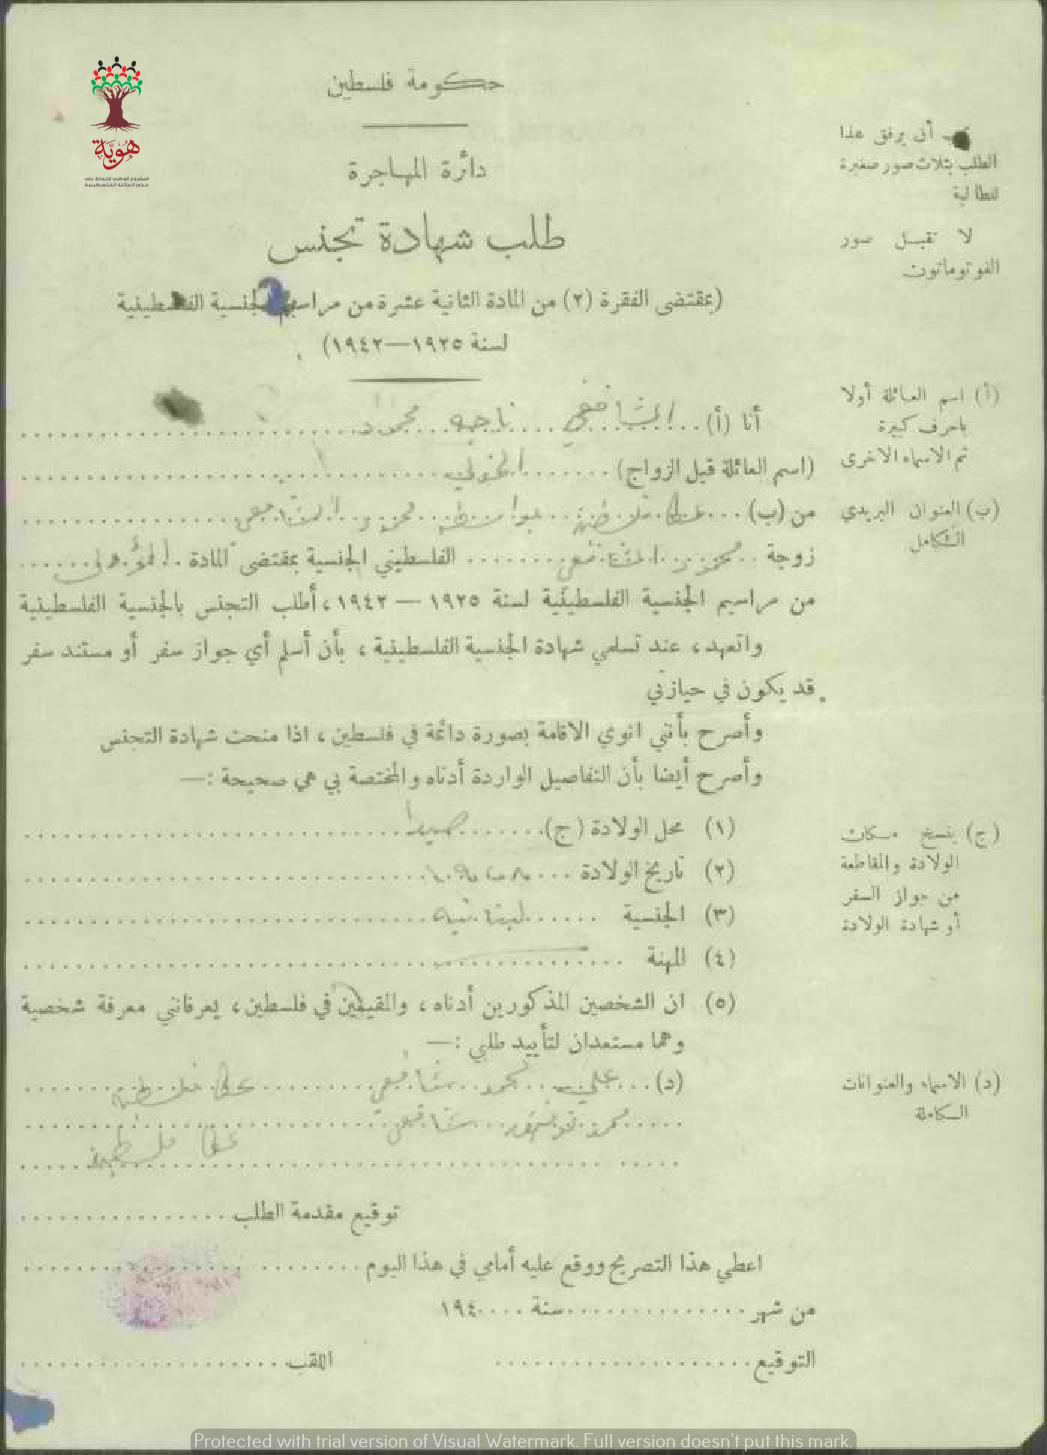 هوية
حكومة فلسطين
دائرة المهاجرة
طلب شهادة تجنس
(بمقتضى الفقرة (٢) من المادة الثانية عشرة من مراسيم الجنسية الفلسطينية
لسنة ١٩٢٥—١٩٤٢)
أن يرفق هذا
الطلب بثلاث صور صغيرة
للطالبة
لا تقبل صور
الفوتوماتون
أنا (أ) الشافعي ناجيه محمود
(اسم العائلة قبل الزواج) الخولي
(أ) اسم العائلة أولا
باحرف كبيرة
ثم الاسماء الاخرى
من (ب) عكا فلسطين بواسطة محمود الشافعي
(ب) العنوان البريدي
الكامل
زوجة محمود الشافعي الفلسطيني الجنسية بمقتضى المادة
من مراسيم الجنسية الفلسطينية لسنة ١٩٢٥ — ١٩٤٢، أطلب التجنس بالجنسية الفلسطينية
واتعهد، عند تسلمي شهادة الجنسية الفلسطينية، بأن أسلم أي جواز سفر أو مستند سفر
قد يكون في حيازتي
وأصرح بأنني انوي الاقامة بصورة دائمة في فلسطين، اذا منحت شهادة التجنس
وأصرح أيضا بأن التفاصيل الواردة أدناه والمختصة بي هي صحيحة :—
(١) محل الولادة (ج) صيدا
(٢) تاريخ الولادة
(٣) الجنسية لبنانيه
(٤) المهنة
(ج) ينسخ مكان
الولادة والمقاطعة
من جواز السفر
أو شهادة الولادة
(٥) ان الشخصين المذكورين أدناه، والمقيمين في فلسطين، يعرفانني معرفة شخصية
وهما مستعدان لتأييد طلبي :—
(د) علي شافعي عكا فلسطين
شافعي
عكا فلسطين
(د) الاسماء والعنوانات
الكاملة
توقيع مقدمة الطلب
اعطي هذا التصريح ووقع عليه أمامي في هذا اليوم
من شهر سنة ١٩٤
التوقيع اللقب
Protected with trial version of Visual Watermark. Full version doesn't put this mark.